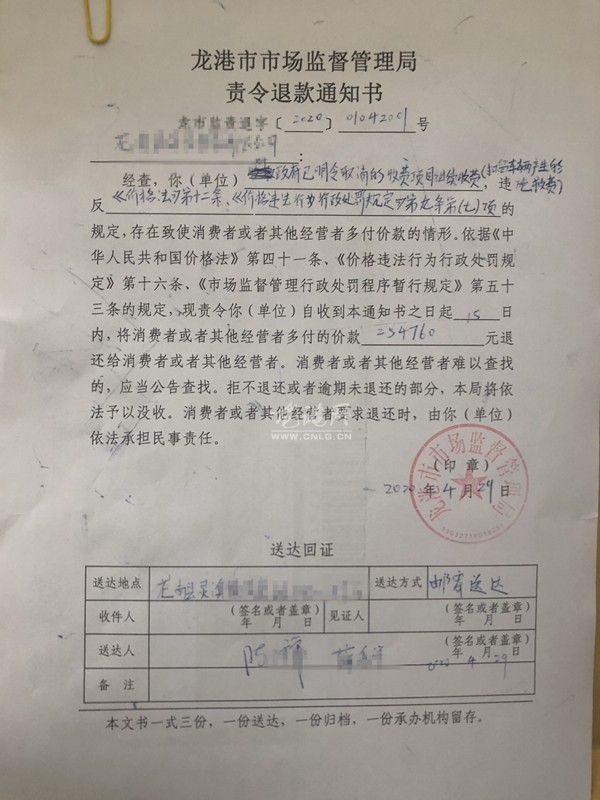 龙港市市场监督管理局
责令退款通知书
龙市监责退字〔2020〕01042001号
经查，你（单位）政府已明令取消的收费项目继续收费(扣留车辆产生的
收费)，违
反《价格法》第十二条、《价格违法行为行政处罚规定》第九条第(七)项的
规定，存在致使消费者或者其他经营者多付价款的情形。依据《中
华人民共和国价格法》第四十一条、《价格违法行为行政处罚规
定》第十六条、《市场监督管理行政处罚程序暂行规定》第五十
三条的规定，现责令你（单位）自收到本通知书之日起15日
内，将消费者或者其他经营者多付的价款234760元退
还给消费者或者其他经营者。消费者或者其他经营者难以查找
的，应当公告查找。拒不退还或者逾期未退还的部分，本局将依
法予以没收。消费者或者其他经营者要求退还时，由你（单位）
依法承担民事责任。
龙港网
WWW.CNLG.CN
（印章）
2020年4月29日
龙港市市场监督管理局
送达回证
送达地点 送达方式 邮寄送达
收件人 （签名或者盖章） 年 月 日 见证人 （签名或者盖章） 年 月 日
送达人 陈 （签名或者盖章） 2020年4月29日
备 注
本文书一式三份，一份送达，一份归档，一份承办机构留存。